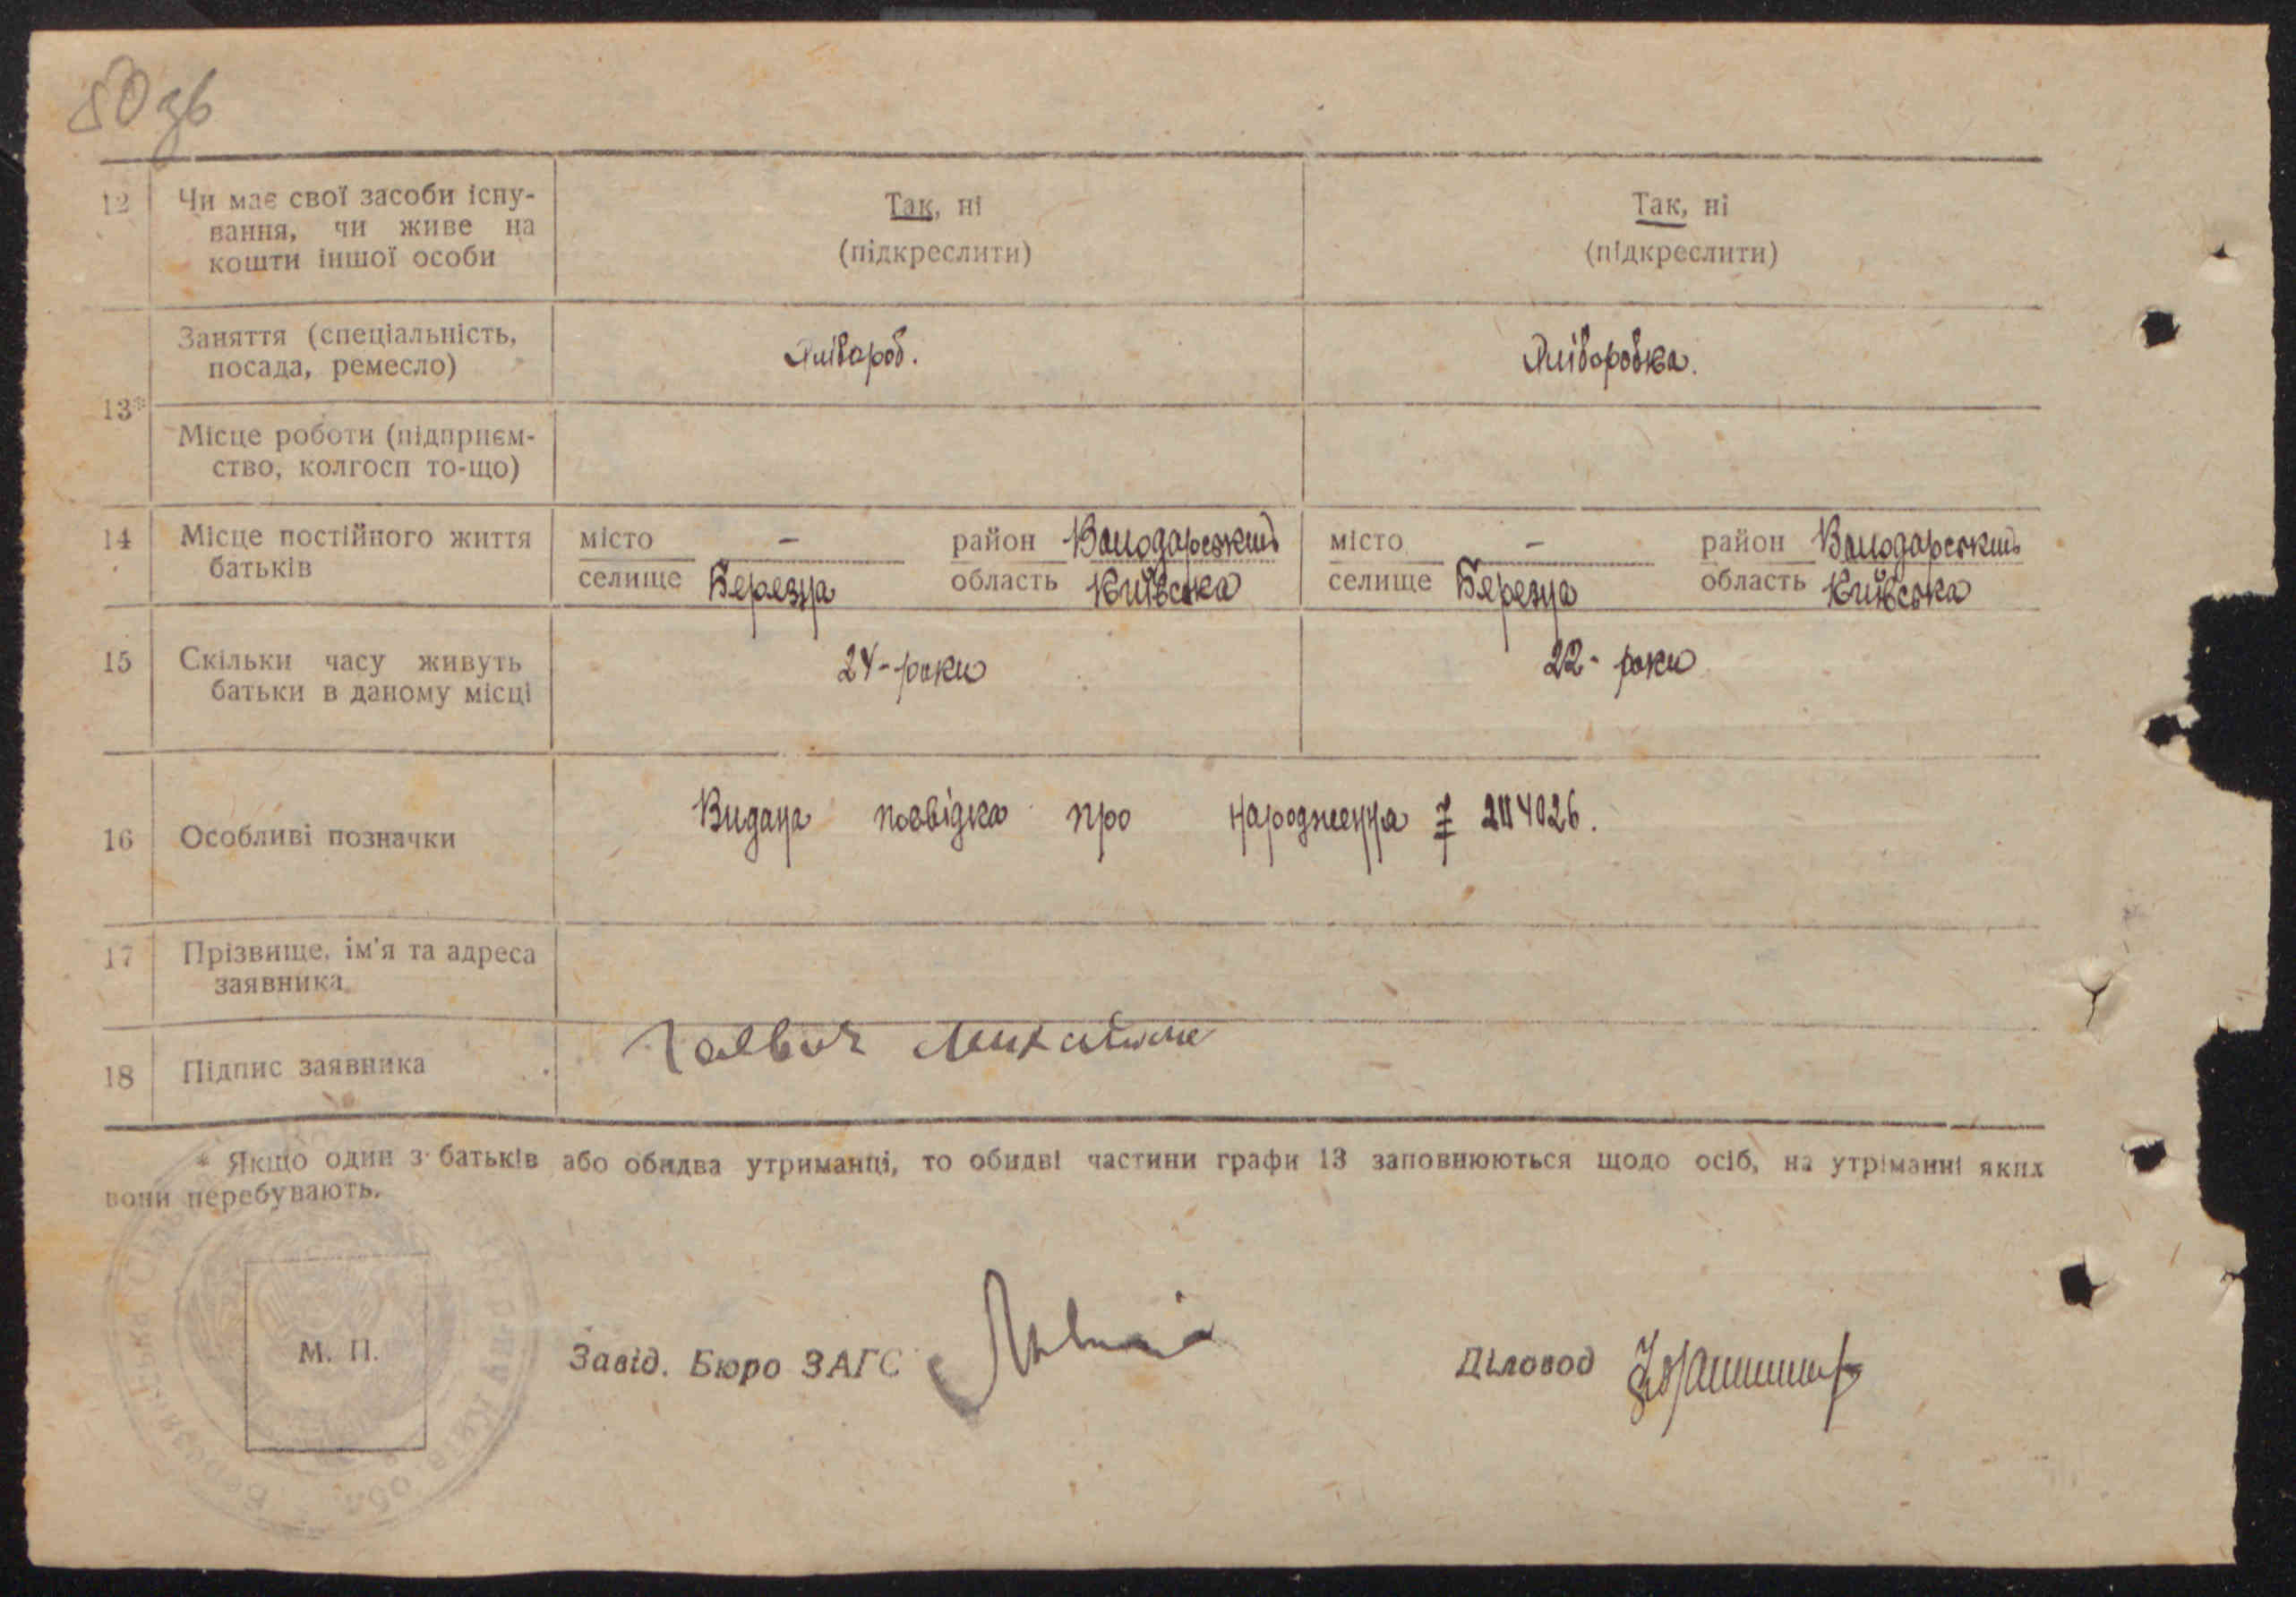 80 зв
12 Чи має свої засоби існу- Так, ні Так, ні
вання, чи живе на (підкреслити) (підкреслити)
кошти іншої особи
Заняття (спеціальність, Хлібороб. Хліборобка.
посада, ремесло)
13*
Місце роботи (підприєм-
ство, колгосп то-що)
14 Місце постійного життя місто - район Володарський місто - район Володарський
батьків селище Березна область Київська селище Березна область Київська
15 Скільки часу живуть 24-роки 22- роки
батьки в даному місці
16 Особливі позначки Видана посвідка про народження № 204026.
17 Прізвище, ім'я та адреса
заявника
18 Підпис заявника
* Якщо один з батьків або обидва утриманці, то обидві частини графи 13 заповнюються щодо осіб, на утріманні яких
вони перебувають.
М. П. Завід. Бюро ЗАГС Діловод